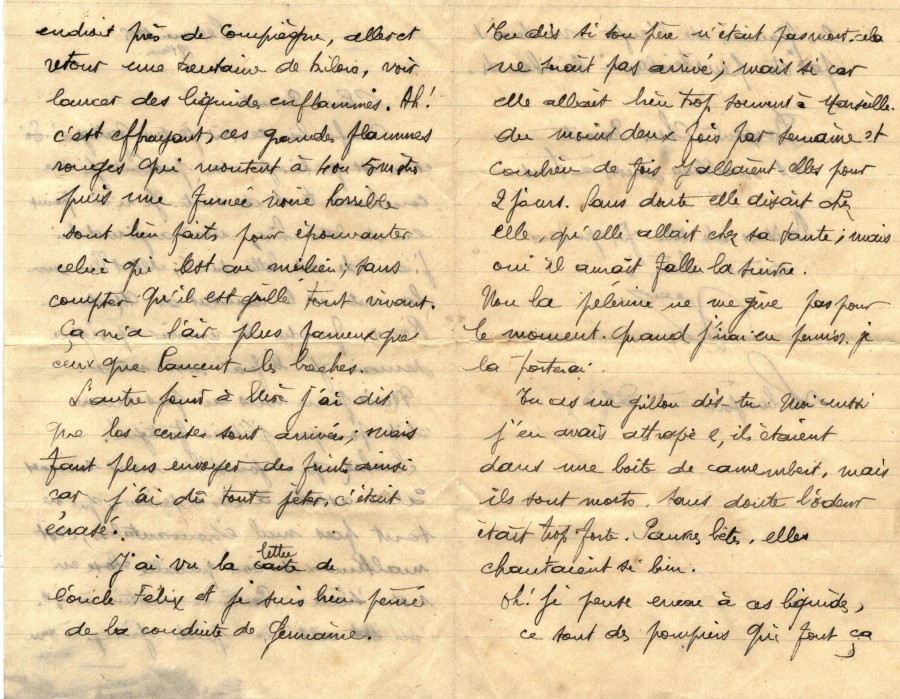 endroit près de Compiègne, aller et
retour une trentaine de kilos, voir
lancer des liquides enflammés. Ah!
c'est effrayant, ces grandes flammes
rouges qui montent à 4 ou 5 mètres
puis une fumée noire horrible
sont bien faits pour épouvanter
celui qui est au milieu; sans
compter qu'il est grillé tout vivant.
Ça m'a l'air plus fameux que
ceux que lancent les boches.
L'autre jour à Mère j'ai dit
que les cerises sont arrivées; mais
faut plus envoyer des fruits ainsi
car j'ai dû tout jeter, c'était
écrasé.
J'ai vu la lettre de
l'oncle Félix et je suis bien peiné
de la conduite de Germaine.
Tu dis si son père n'était pas mort cela
ne serait pas arrivé; mais si car
elle allait bien trop souvent à Marseille.
du moins deux fois par semaine et
combien de fois y allaient-elles pour
2 jours. Sans doute elle disait chez
elle, qu'elle allait chez sa tante; mais
oui il aurait fallu la suivre.
Non la pèlerine ne me gêne pas pour
le moment. Quand j'irai en permiss. je
la porterai.
Tu as un grillon dis-tu. Moi aussi
j'en avais attrapé 2, ils étaient
dans une boîte de camembert, mais
ils sont morts, sans doute l'odeur
était trop forte. Pauvres bêtes, elles
chantaient si bien.
Oh! je pense encore à ces liquides,
ce sont des pompiers qui font ça